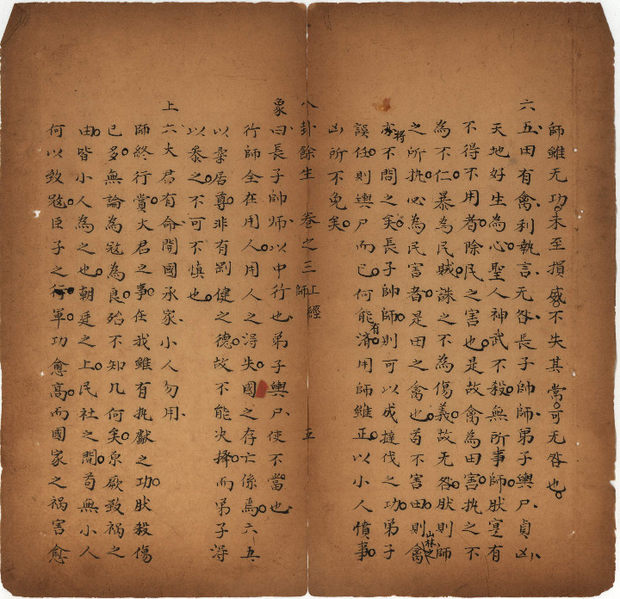 師雖无功未至損威不失其常可无咎也
六五田有禽利執言无咎長子帥師弟子輿尸貞凶
天地好生為心聖人神武不殺無所事師肰寔有
不得不用者除民之害也是故禽為田害执之不
為不仁暴為民賊誅之不為傷義故无咎肰則師
之所执必為民害者是田之禽也苟不害田則禽山林之
將亦不問之矣長子帥師則可以成撻伐之功弟子
誤任則輿尸而已何能有濟用師雖正以小人僨事
凶所不免矣
八卦餘生 卷之三 上經 師 五
象曰長子帥师以中行也弟子輿尸使不當也
行師全在用人用人之得失國之存亡係焉六五
以柔居尊非有剛健之德故不能决擇而弟子得
以叅之不可不慎也
上六大君有命開國承家小人勿用
師終行賞大君之事在我雖有执獻之功肰殺傷
已多無論為冦為良殆不知几何矣泉厥致禍之
由皆小人為之也朝廷之上民社之間苟無小人
何以致冦臣子之行軍功愈高而國家之禍害愈